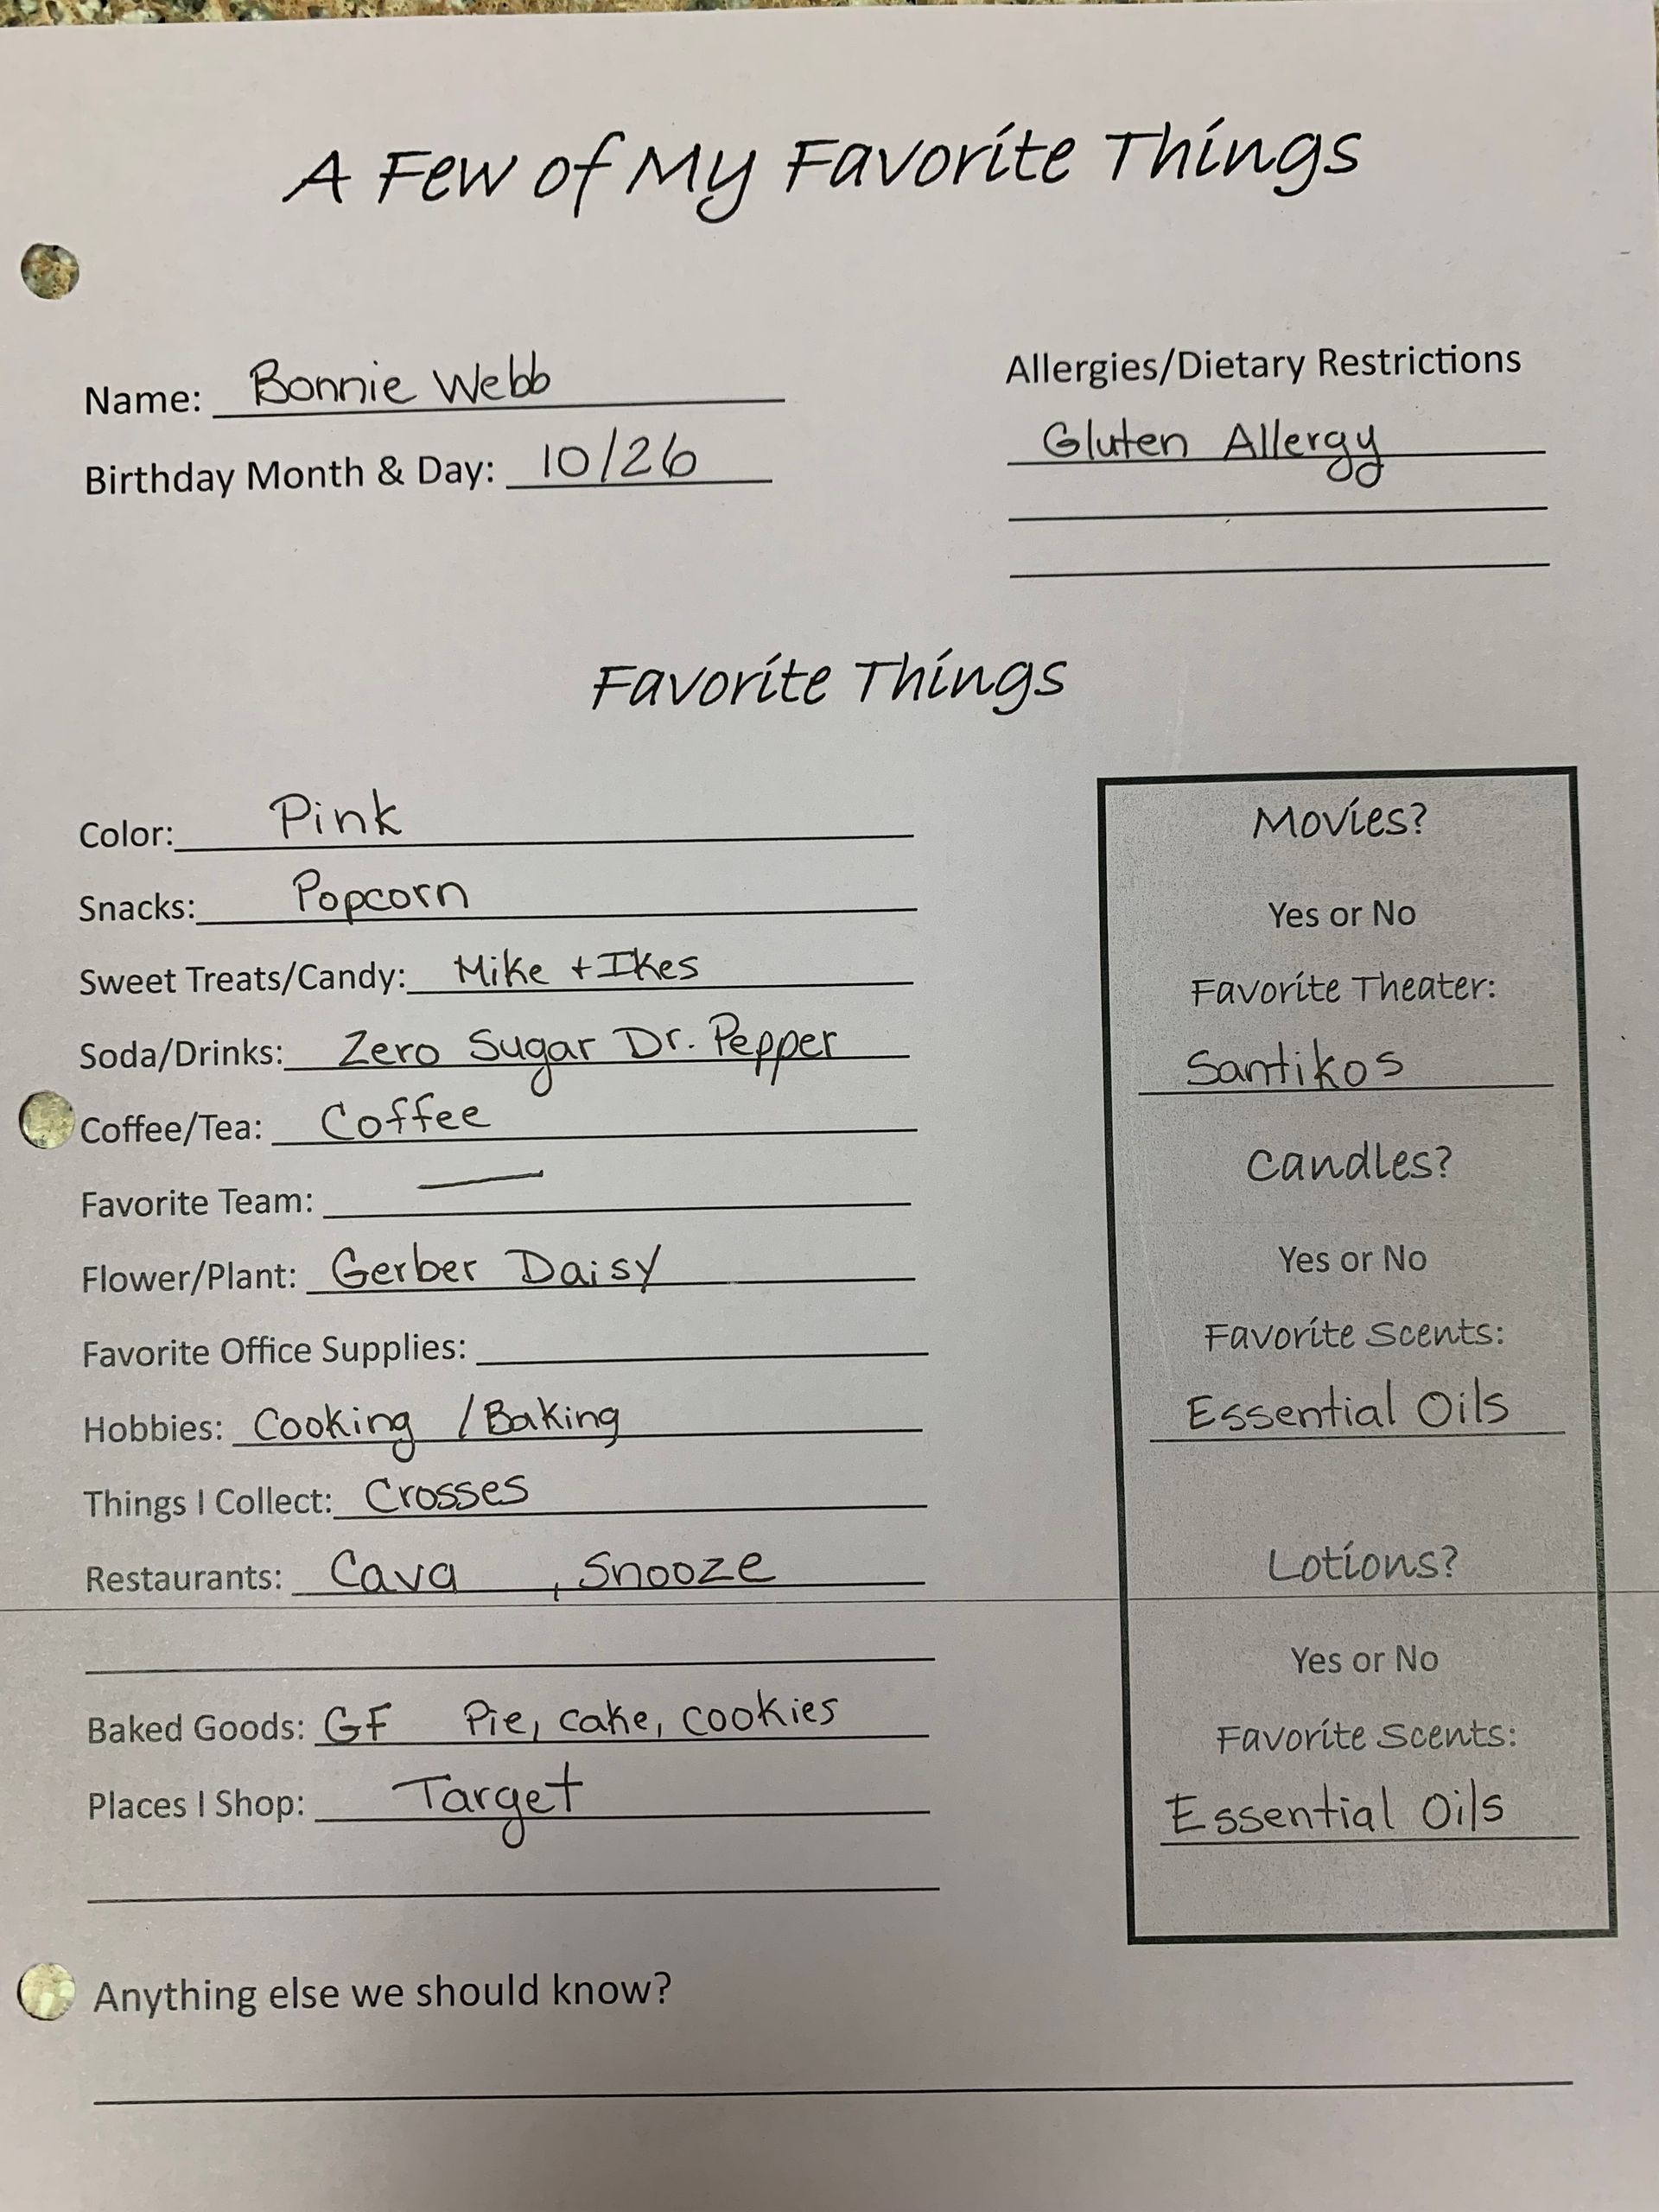 A Few of My Favorite Things
Name: Bonnie Webb
Birthday Month & Day: 10/26
Allergies/Dietary Restrictions
Gluten Allergy
Favorite Things
Color: Pink
Snacks: Popcorn
Sweet Treats/Candy: Mike + Ikes
Soda/Drinks: Zero Sugar Dr. Pepper
Coffee/Tea: Coffee
Favorite Team: —
Flower/Plant: Gerber Daisy
Favorite Office Supplies:
Hobbies: Cooking / Baking
Things I Collect: Crosses
Restaurants: Cava , Snooze
Baked Goods: GF Pie, cake, cookies
Places I Shop: Target
Movies?
Yes or No
Favorite Theater:
Santikos
Candles?
Yes or No
Favorite Scents:
Essential Oils
Lotions?
Yes or No
Favorite Scents:
Essential Oils
Anything else we should know?